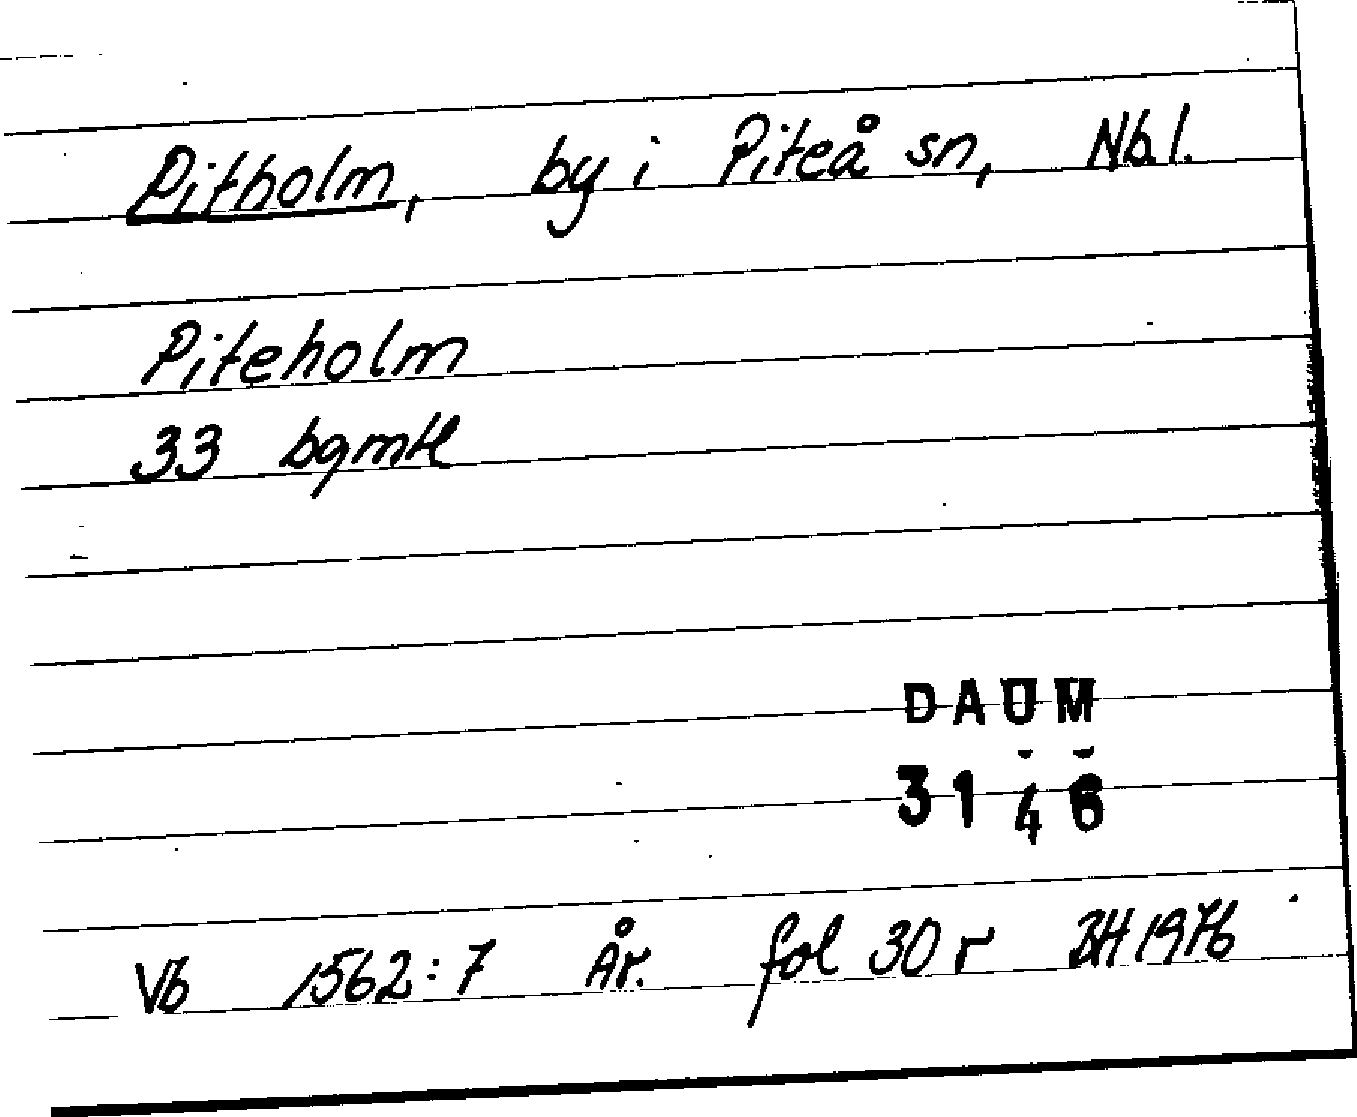 Pitholm, by i Piteå sn, Nb.l.
Piteholm
33 bqmtl
DAUM
3146
Vb 1562:7 År. fol 30 r BH 1976